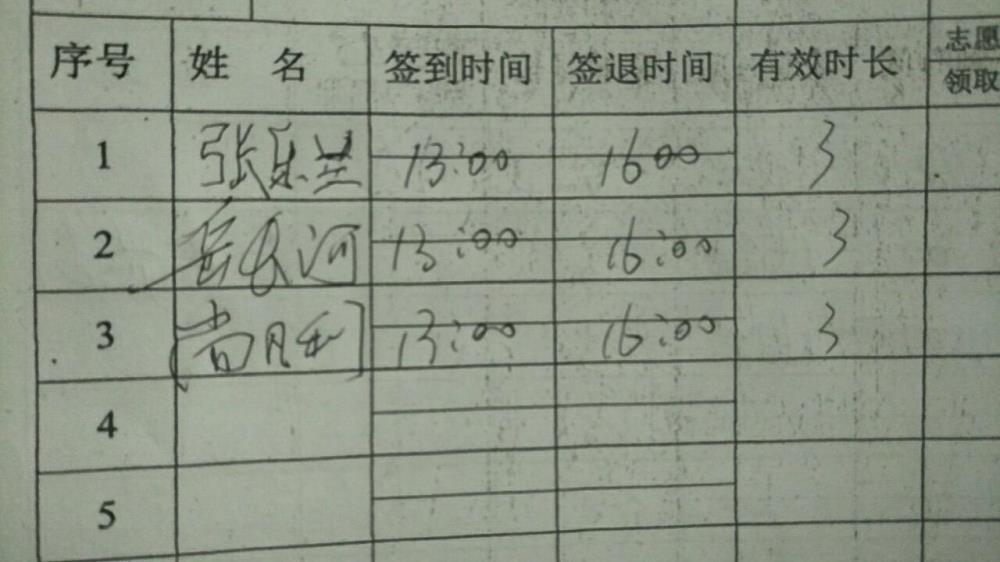 序号 姓名 签到时间 签退时间 有效时长 志愿
领取
1 张乐兰 13:00 1600 3
2 岳长河 13:00 16:00 3
3 13:00 16:00 3
4
5